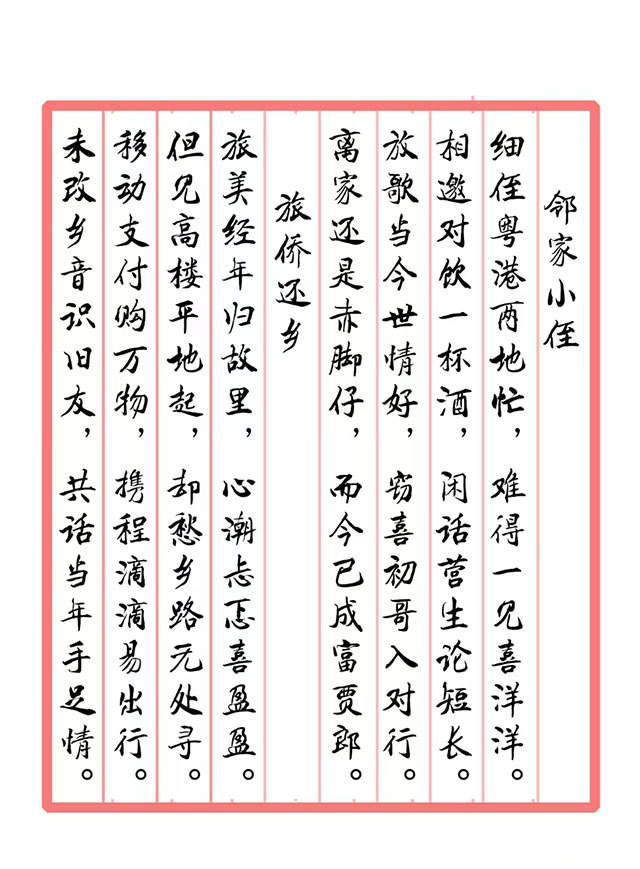 邻家小侄
细侄粤港两地忙，难得一见喜洋洋。
相邀对饮一杯酒，闲话营生论短长。
放歌当今世情好，窃喜初哥入对行。
离家还是赤脚仔，而今已成富贾郎。
旅侨还乡
旅美经年归故里，心潮忐忑喜盈盈。
但见高楼平地起，却愁乡路无处寻。
移动支付购万物，携程滴滴易出行。
未改乡音识旧友，共话当年手足情。